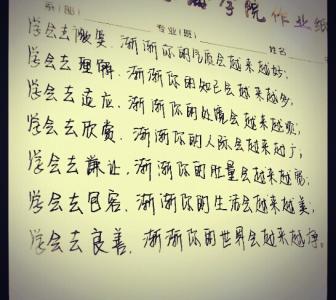 学院作业纸
系(部) 专业(班) 姓名
学会去微笑、渐渐你的气质会越来越好;
学会去理解、渐渐你的知己会越来越多;
学会去适应、渐渐你的处境会越来越顺;
学会去欣赏、渐渐你的人际会越来越广;
学会去谦让、渐渐你的肚量会越来越宽;
学会去包容、渐渐你的生活会越来越美;
学会去良善、渐渐你的世界会越来越净。